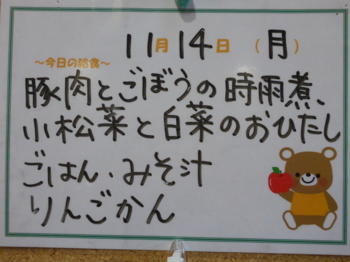 11月14日（月）
～今日の給食～
豚肉とごぼうの時雨煮、
小松菜と白菜のおひたし
ごはん・みそ汁
りんごかん